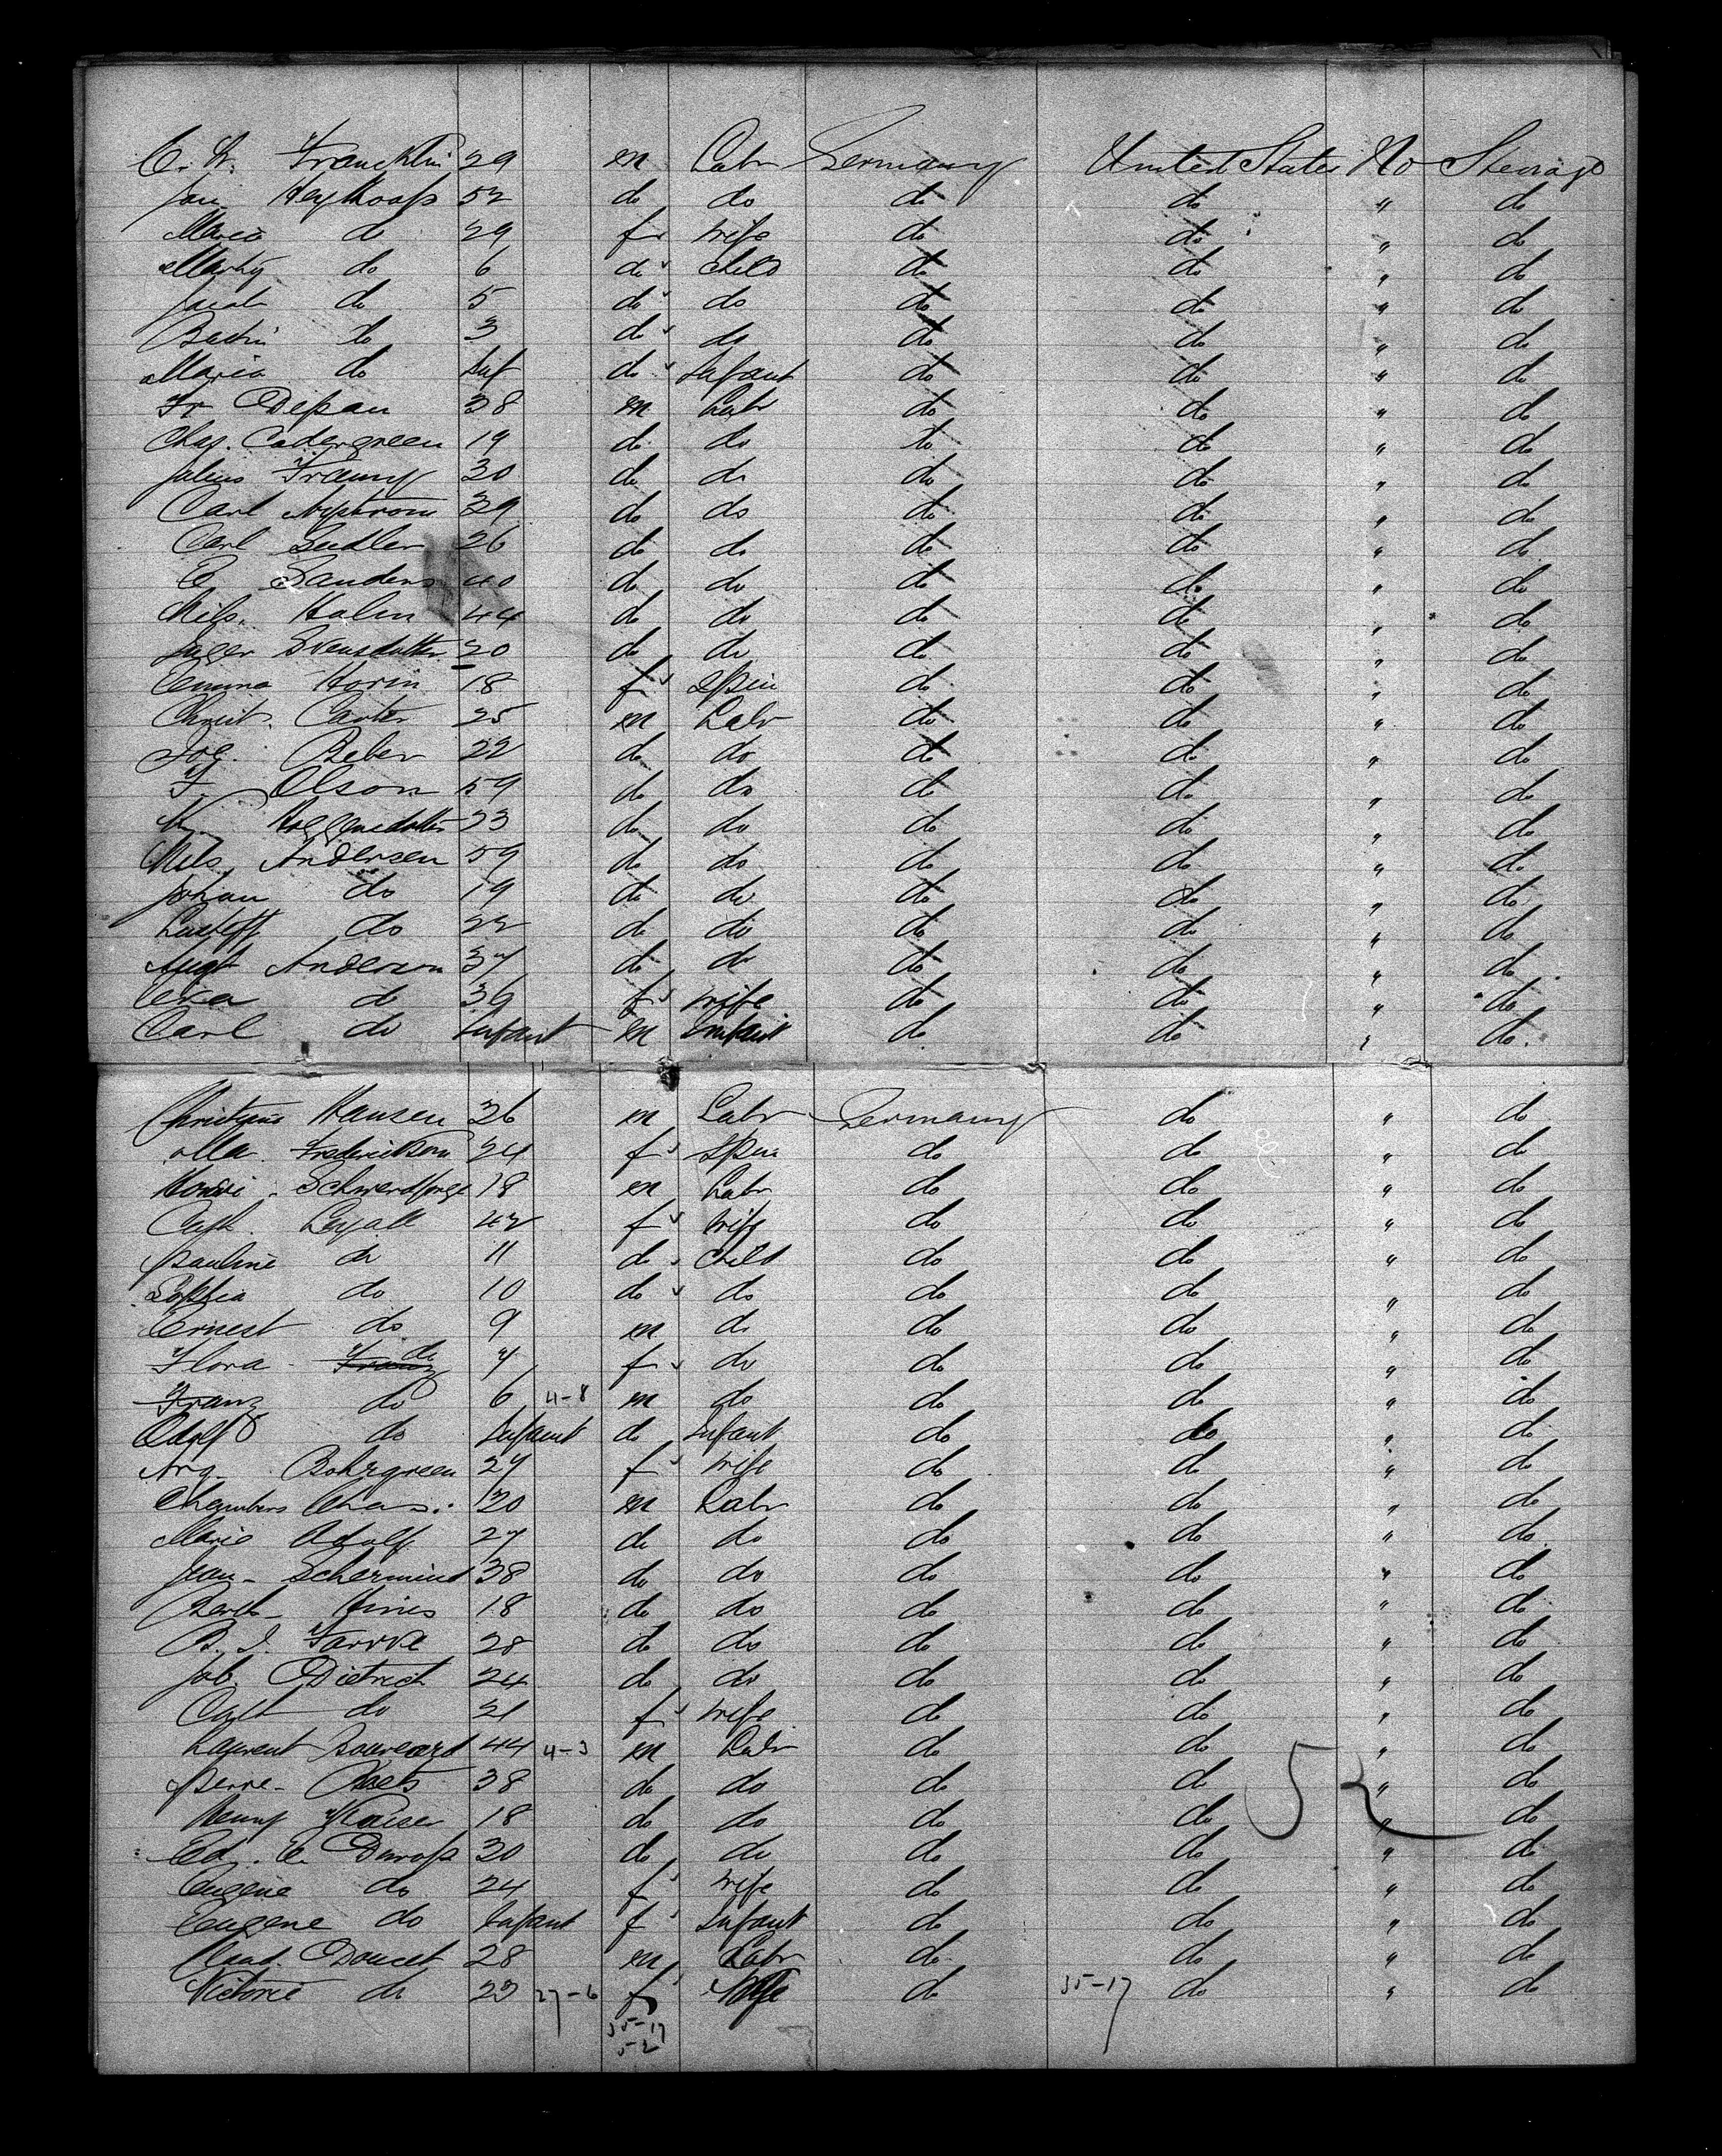 C. W. Francklin 29 m Labr Germany United States No Steerage
Jan Heykoop 52 do do do do " do
Maria do 29 f wife do do " do
Marty do 6 do child do do " do
Jacob do 5 do do do do " do
do 3 do do do do " do
Maria do Inf do Infant do do " do
Fr Depau 38 m Labr do do " do
Chas. Cadergreen 19 do do do do " do
Julius 30 do do do do " do
Carl Nystrom 39 do do do do " do
Carl Sedler 26 do do do do " do
C Sanders 40 do do do do " do
Nils. Halm 44 do do do do " do
Inger Svensdotter 20 do do do do " do
Emma Horin 18 f Spin do do " do
Christ. Carter 25 m Labr do do " do
Jos. Beber 22 do do do do " do
F. Olson 59 do do do do " do
23 do do do do " do
Nils Andersen 59 do do do do " do
Johan do 19 do do do do " do
do 22 do do do do " do
Augt Anderson 37 do do do do " do
do 36 f wife do do " do
Carl do Infant m Infant do do " do
Hansen 26 m Labr Germany do " do
Ma. Fredericksom 24 f Spin do do " do
18 m Labr do do " do
Cath. Loyall 42 f wife do do " do
Pauline do 11 do child do do " do
Sophia do 10 do do do do " do
Ernest do 9 m do do do " do
Flora Franz do 7 f do do do " do
Franz do 6 4-8 m do do do " do
Adolf do Infant do Infant do do " do
Bohrgreen 27 f wife do do " do
Chambers Chas. 20 m Labr do do " do
Marie Adolf 27 do do do do " do
Jean Schermind 38 do do do do " do
Hines 18 do do do do " do
B. J. Farrke 28 do do do do " do
Jab. Dietrich 24 do do do do " do
Cath do 21 f wife do do " do
Laurent 44 4-3 m Labr do do " do
Pierre 38 do do do do " do
52
Henry Kaiser 18 do do do do " do
Ed. C. 30 do do do do " do
Eugenie do 24 f wife do do " do
Eugene do Infant f Infant do do " do
Doucet 28 m Labr do do " do
Victorie do 23 27-6 f Wife do 35-17 do " do
35-17
52